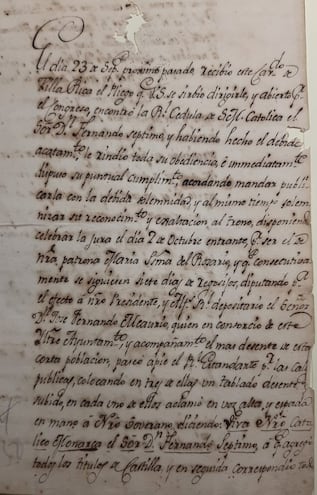 El dia 23 de Sbre. proximo pasado, recibió este Cavdo. de
Villa Rica el Pliego q. US. se sirbió dirigirle, y abierto pr.
el Congreso, encontró la Rl. Cedula de S. M. Catolica el
Sor. Dn. Fernando septimo, y habiendo hecho el debido
acatamto. le rindio toda su obediencia, é inmediatamte.
su puntual cumplimto., acordando mandar publi
carla con la debida solemnidad, y al mismo tiempo solem
nizar su reconocimto. y exaltacion al trono, disponiendo
celebrar la Jura el dia 2 de Octubre entrante, pr. ser el de
Nra. patrona Maria Sma. del Rosario, y q. consecutiva
mente se siguiesen siete dias de regosijos, diputando pa.
el efecto á nro. Presidente, y Alfs. Rl. depositario el Señor
Dn. Jose Fernando Mcaurio, quien en consorcio de este
Iltre. Ayuntamto., y acompañamto. el mas desente de esta
corta poblacion, paseó apie el Rl. Estandarte pr. las calls.
publicas, colocando en tres de ellas un tablado decente
subido, en cada uno de ellos aclamó en voz alta, y espada
en mano a Nro. Soverano, diciendo: Viva Nro. Cato
lico Monarca el Sor. Dn. Fernando Septimo, á q. agregó
todos los titulos de Castilla, y en seguida correspondió todo